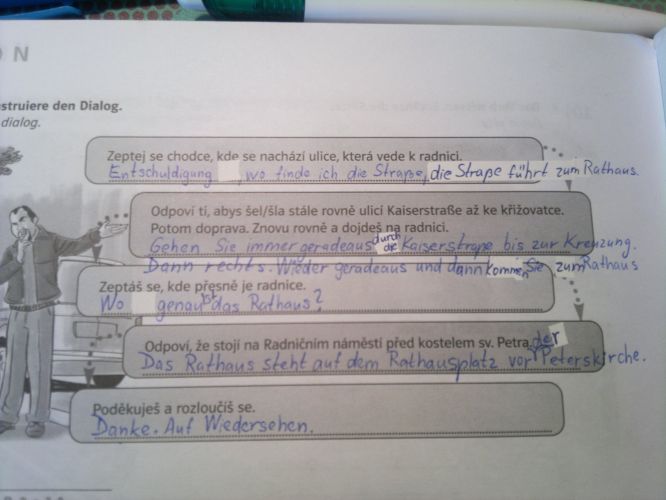 O N
struiere den Dialog.
dialog.
Zeptej se chodce, kde se nachází ulice, která vede k radnici.
Entschuldigung, wo finde ich die Straße, die Straße führt zum Rathaus.
Odpoví ti, abys šel/šla stále rovně ulicí Kaiserstraße až ke křižovatce.
Potom doprava. Znovu rovně a dojdeš na radnici.
Gehen Sie immer geradeaus durch die Kaiserstraße bis zur Kreuzung.
Dann rechts. Wieder geradeaus und dann kommen Sie zum Rathaus
Zeptáš se, kde přesně je radnice.
Wo genau ist das Rathaus?
Odpoví, že stojí na Radničním náměstí před kostelem sv. Petra.
Das Rathaus steht auf dem Rathausplatz vor der Peterskirche.
Poděkuješ a rozloučíš se.
Danke. Auf Wiedersehen.